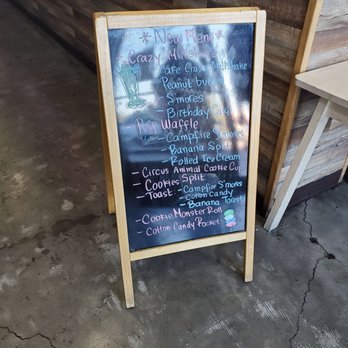 * New Menu *
Crazy Milkshakes
- Cake Crazy Milkshake
- Peanut butter
- S'mores
- Birthday Cake
Pop Waffle
- Campfire S'mores
- Banana Split
- Rolled Ice Cream
- Circus Animal Cookie Cup
- Cookies Split
- Toast - Campfire S'mores
- Cotton Candy
- Banana Toast
- Cookie Monster Roll
- Cotton Candy Pocket